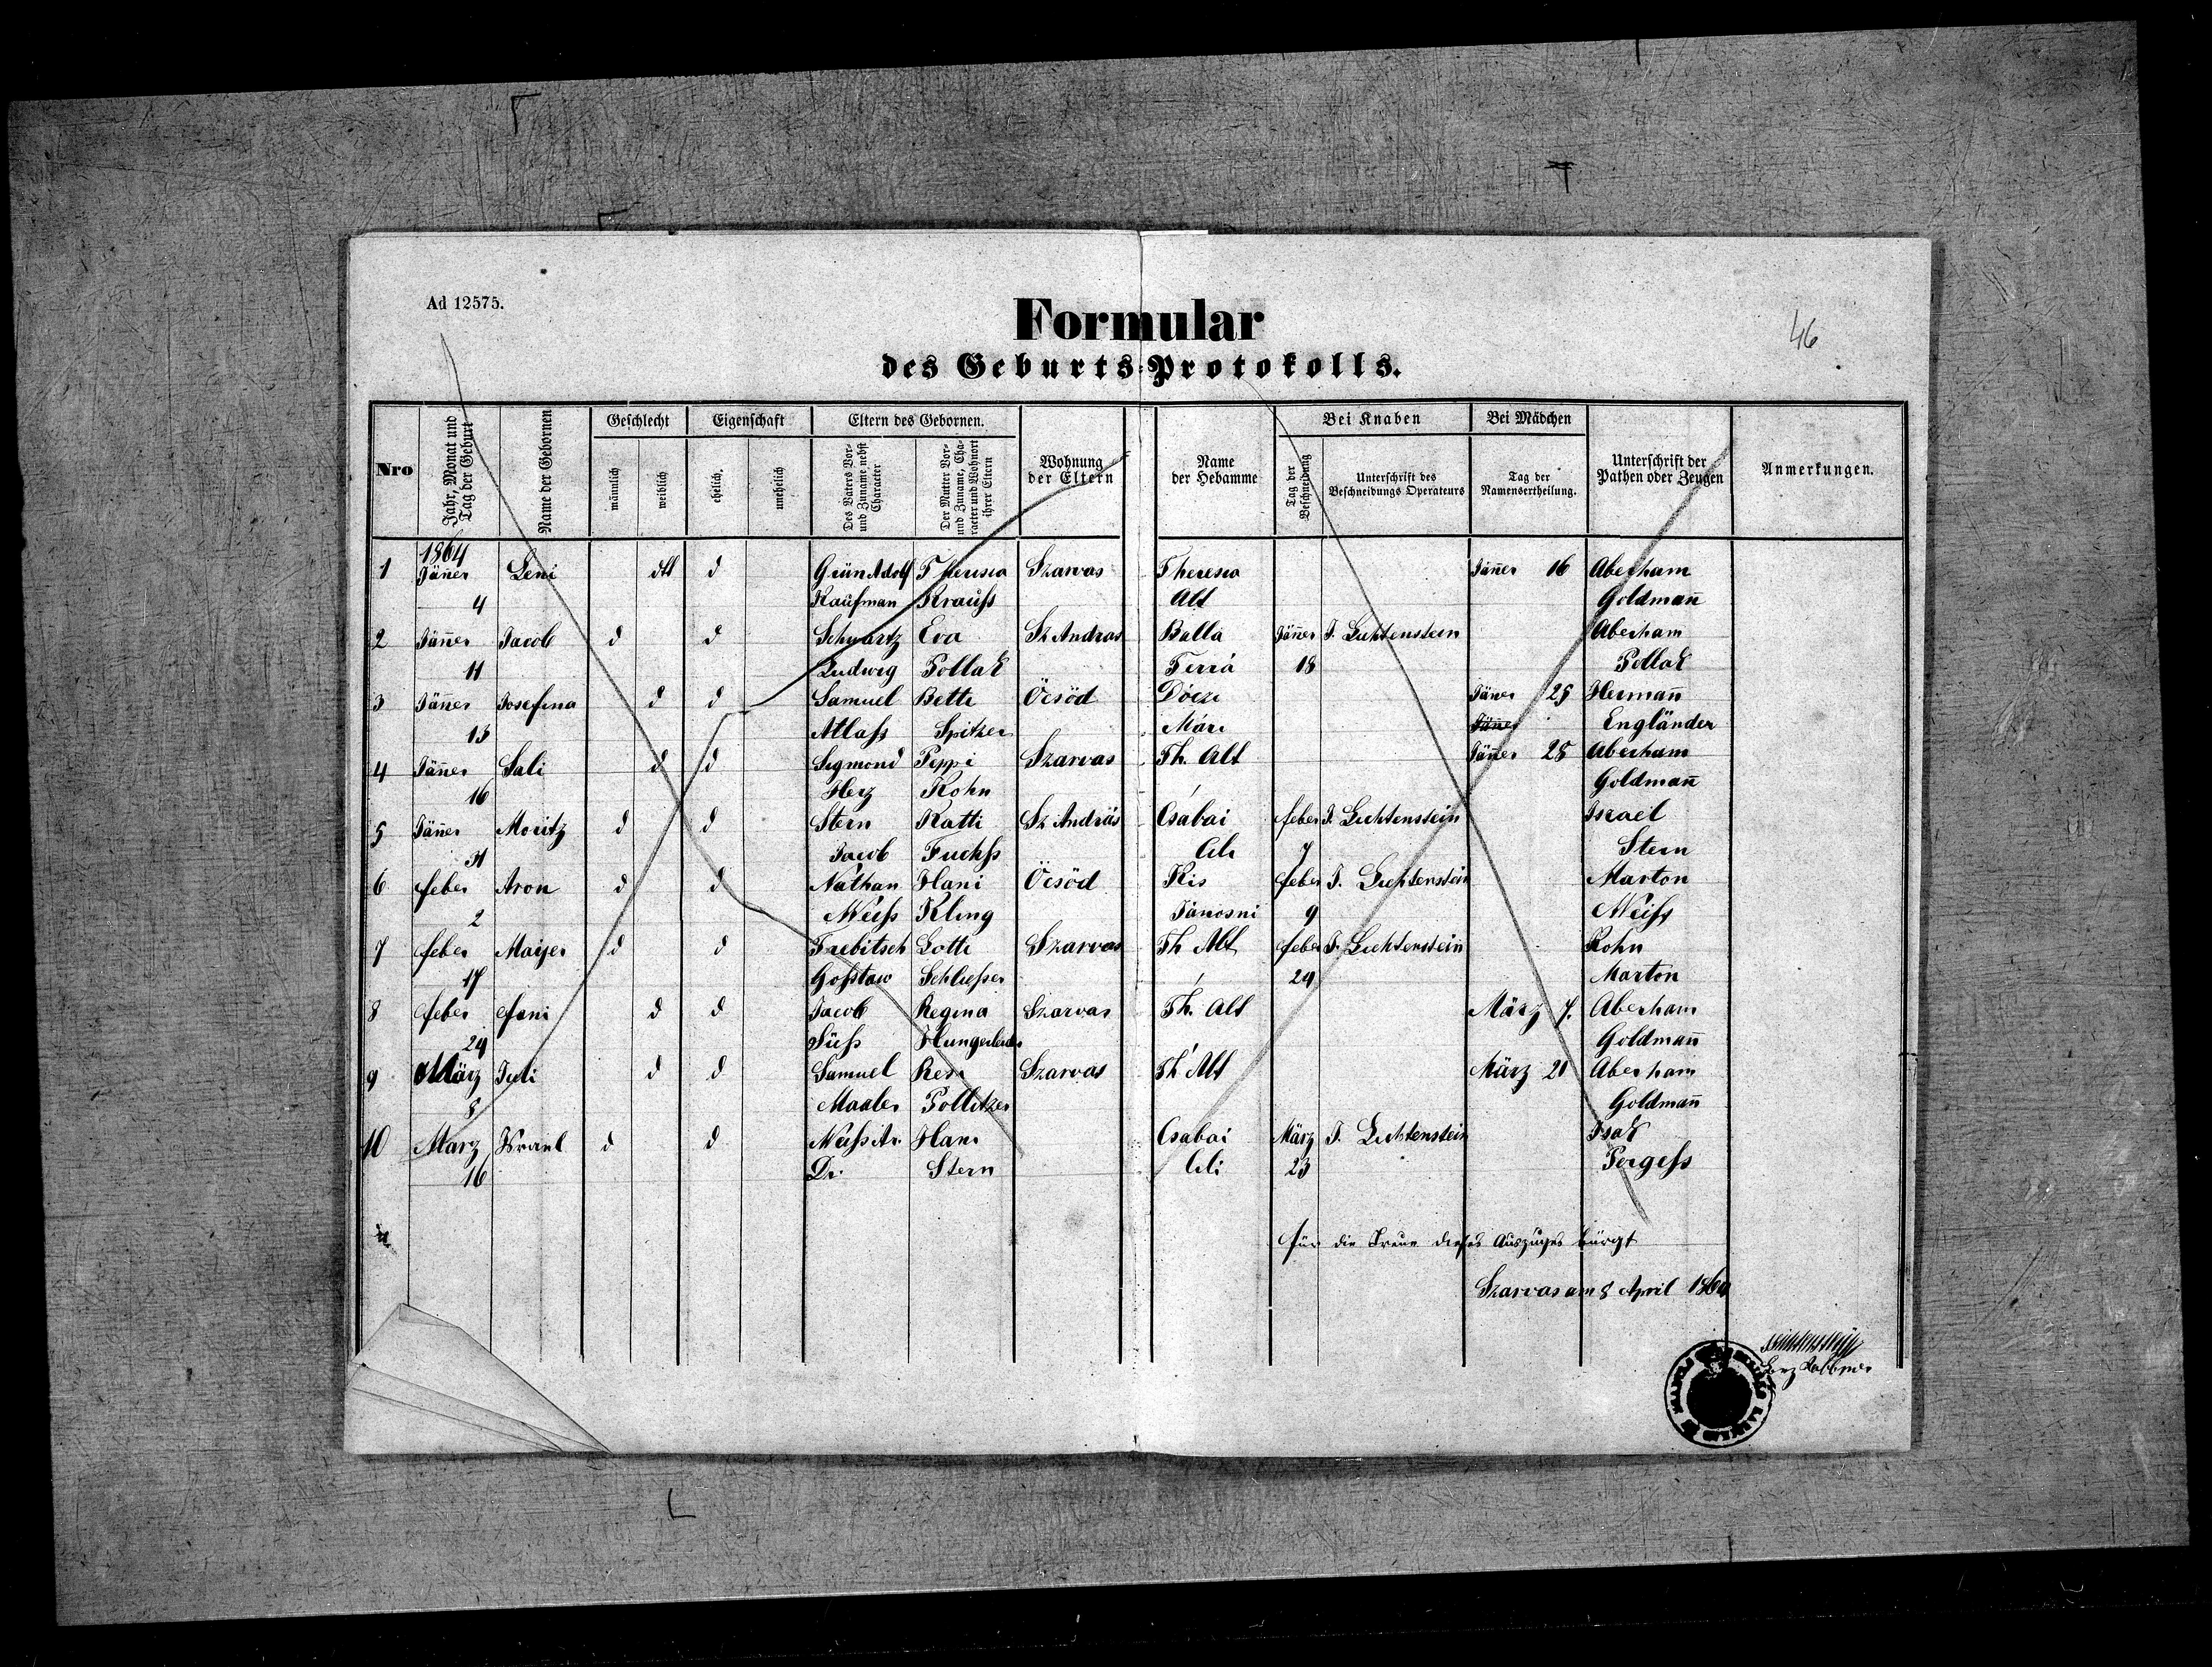 Ad 12575.
46
Formular
des Geburts-Protokolls.
Nro
Jahr, Monat und Tag der Geburt
Name der Gebornen
Geschlecht
männlich
weiblich
Eigenschaft
ehelich.
unehelich
Eltern des Gebornen.
Des Vaters Vor- und Zuname nebst Character
Der Mutter Vor- und Zuname, Character und Wohnort ihrer Eltern
Wohnung der Eltern
Name der Hebamme
Bei Knaben
Tag der Beschneidung
Unterschrift des Beschneidungs Operateurs
Bei Mädchen
Tag der Namensertheilung.
Unterschrift der Pathen oder Zeugen
Anmerkungen.
1864
1 Jäner Leni d Grün Adolf Theresia Szarvas Theresia Jäner 16 Aberham
4 Kaufman Krauss Alt Goldman
2 Jäner Jacob d d Schwartz Eva Sz Andras Balla Jäner J. Lichtenstein Aberham
11 Ludwig Pollak Terrá 18 Pollak
3 Jäner Josefina d d Samuel Betti Öcsöd Dócze Jäner 25 Herman
13 Atlass Spitzer Mári Jäner Engländer
4 Jäner Sali d d Sigmond Peppi Szarvas Th. Alt Jäner 28 Aberham
16 Herz Kohn Goldman
5 Jäner Moritz d d Stern Katti Sz Andräs Csabai feber J. Lichtenstein Israel
31 Jacob Fuchss 7 Stern
6 feber Aron d d Nathan Hani Öcsöd Kis feber J. Lichtenstein Marton
2 Weiss Kling Janosni 9 Weiss
7 feber Maijer d d Trebitsch Lotti Szarvas Th Alt feber J. Lichtenstein Kohn
17 Gosstaw Schliesser 24 Marton
8 feber fani d d Jacob Regina Szarvas Th. Alt März 7. Aberham
24 Süss Goldman
9 März Juli d d Samuel Resi Szarvas Th Alt März 21 Aberham
8 Maaler Pollitzer Goldman
10 März Israel d d Hani Csabai März J. Lichtenstein Isak
16 Dr. Stern Cili 23 Pergess
für die Treue dieses Auszuges bürgt
Szarvas am 8 April 1864